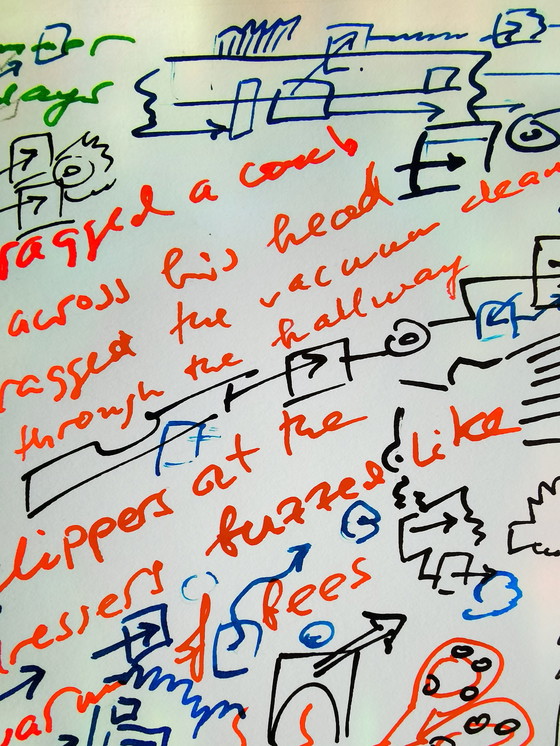 ragged a comb
across his head
ragged the vacuum clean
through the hallway
lippers at the
ressers buzzed like
of bees
warm